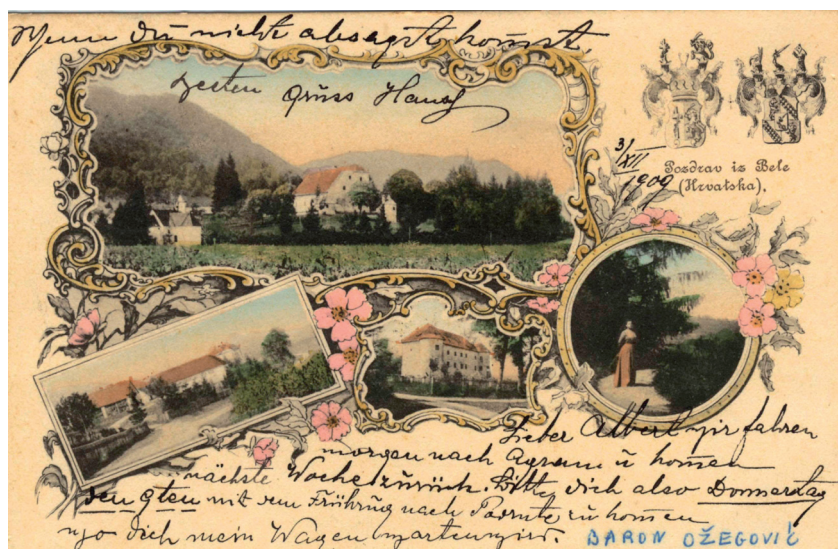 Wenn du nicht absagst kom̅st,
besten Gruss Hans
3/XII 1909
Pozdrav iz Bele
(Hrvatska).
Lieber Albert wir fahren
morgen nach Agram u kom̅en
nächste Woche zurück. Bitte dich also Donnerstag
den 9ten mit dem Frühzug nach zu kom̅en
wo dich mein Wagen warten wird.
BARON OŽEGOVIĆ